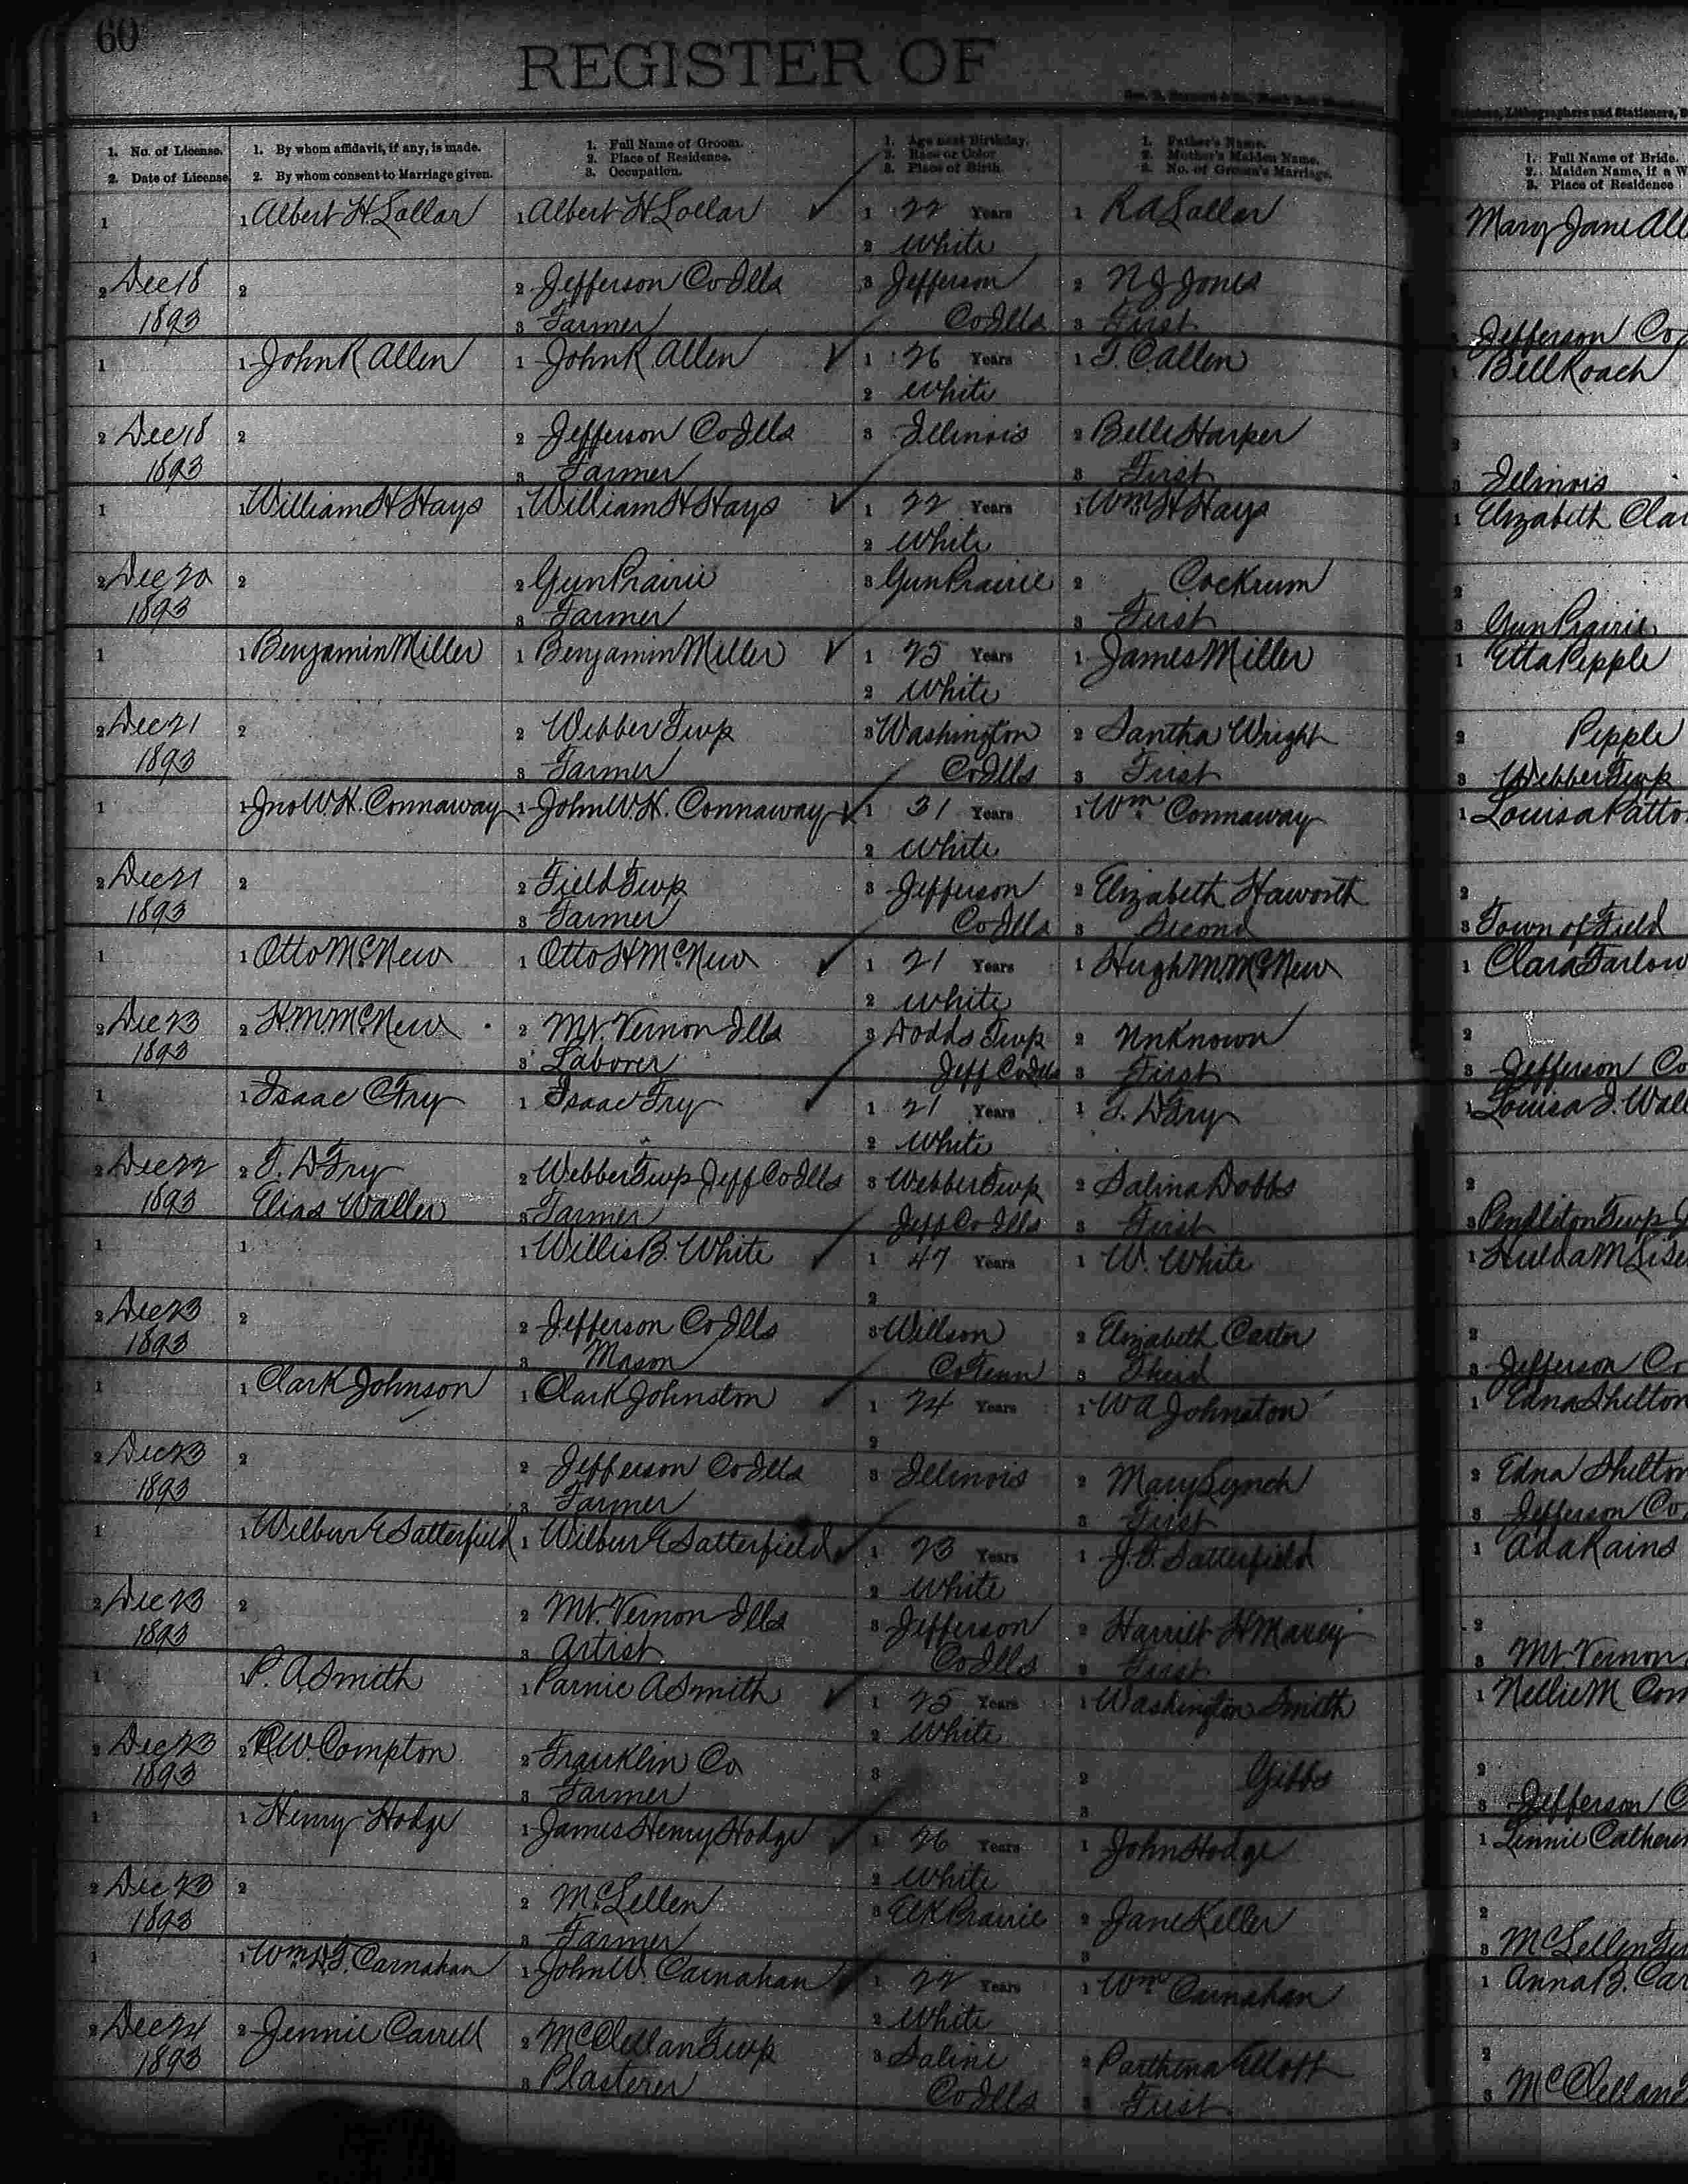 60
REGISTER OF
1. No. of License.
2. Date of License.
1. By whom affidavit, if any, is made.
2. By whom consent to Marriage given.
1. Full Name of Groom.
2. Place of Residence.
3. Occupation.
1. Age next Birthday.
2. Race or Color.
3. Place of Birth.
1. Father's Name.
2. Mother's Maiden Name.
3. No. of Groom's Marriage.
1. Full Name of Bride.
2. Maiden Name, if a W
3. Place of Residence
1
2 Dec 18
1893
1 Albert H Lollar
2
1 Albert H Lollar
2 Jefferson Co Ills
3 Farmer
1 22 Years
2 White
3 Jefferson
Co Ills
1 R A Lollar
2 N J Jones
3 First
Mary Jane All
Jefferson Co
1
2 Dec 18
1893
1 John R Allen
2
1 John R Allen
2 Jefferson Co Ills
3 Farmer
1 26 Years
2 White
3 Illinois
1 T. C. Allen
2 Belle Harper
3 First
1 Bell Roach
2
3 Illinois
1
2 Dec 20
1893
1 William H Hays
2
1 William H Hays
2 Gun Prairie
3 Farmer
1 22 Years
2 White
3 Gun Prairie
1 Wm H Hays
2 Cockrum
3 First
1 Elizabeth Clar
2
3 Gun Prairie
1
2 Dec 21
1893
1 Benjamin Miller
2
1 Benjamin Miller
2 Webber Twp
3 Farmer
1 25 Years
2 White
3 Washington
Co Ills
1 James Miller
2 Santha Wright
3 First
1 Etta Pepple
2 Pepple
3 Webber Twp
1
2 Dec 21
1893
1 Jno W. H. Connaway
2
1 John W. H. Connaway
2 Field Twp
3 Farmer
1 31 Years
2 White
3 Jefferson
Co Ills
1 Wm Connaway
2 Elizabeth Haworth
3 Second
1 Louisa Patto
2
3 Town of Field
1
2 Dec 23
1893
1 Otto McNew
2 H M McNew
1 Otto H McNew
2 Mt. Vernon Ills
3 Laborer
1 21 Years
2 White
3 Dodds Twp
Jeff Co Ills
1 Hugh M. McNew
2 Unknown
3 First
1 Clara Farlow
2
3 Jefferson Co
1
2 Dec 22
1893
1 Isaac C Fry
2 T. D Fry
Elias Waller
1 Isaac Fry
2 Webber Twp Jeff Co Ills
3 Farmer
1 21 Years
2 White
3 Webber Twp
Jeff Co Ills
1 T. D Fry
2 Salina Dobbs
3 First
1 Louisa J. Wall
2
3 Pendleton Twp J
1
2 Dec 23
1893
1
2
1 Willis B. White
2 Jefferson Co Ills
3 Mason
1 47 Years
2
3 Willson
Co Tenn
1 W. White
2 Elizabeth Carter
3 Third
1 Hulda M
2
3 Jefferson Co
1
2 Dec 23
1893
1 Clark Johnson
2
1 Clark Johnston
2 Jefferson Co Ills
3 Farmer
1 24 Years
2
3 Illinois
1 W A Johnston
2 Mary Lynch
3 First
1 Edna Shelton
2 Edna Shelton
3 Jefferson Co
1
2 Dec 23
1893
1 Wilbur E Satterfield
2
1 Wilbur E Satterfield
2 Mt. Vernon Ills
3 Artist
1 23 Years
2 White
3 Jefferson
Co Ills
1 J. T. Satterfield
2 Harriet H Maxey
3 First
1 Ada Rains
2
3 Mt Vernon
1
2 Dec 23
1893
1 P. A. Smith
2 C W. Compton
1 Parnie A Smith
2 Franklin Co
3 Farmer
1 25 Years
2 White
3
1 Washington Smith
2 Gibbs
3
1 Nellie M Com
2
3 Jefferson C
1
2 Dec 23
1893
1 Henry Hodge
2
1 James Henry Hodge
2 McLellen
3 Farmer
1 26 Years
2 White
3 Elk Prairie
1 John Hodge
2 Jane Keller
3
1 Catherin
2
3 McLellen Tw
1
2 Dec 24
1893
1 Wm D. T. Carnahan
2 Jennie Carrell
1 John W. Carnahan
2 McClellan Twp
3 Plasterer
1 22 Years
2 White
3 Saline
Co Ills
1 Wm Carnahan
2 Parthena Elloff
3 First
1 Anna B. Car
2
3 McClelland